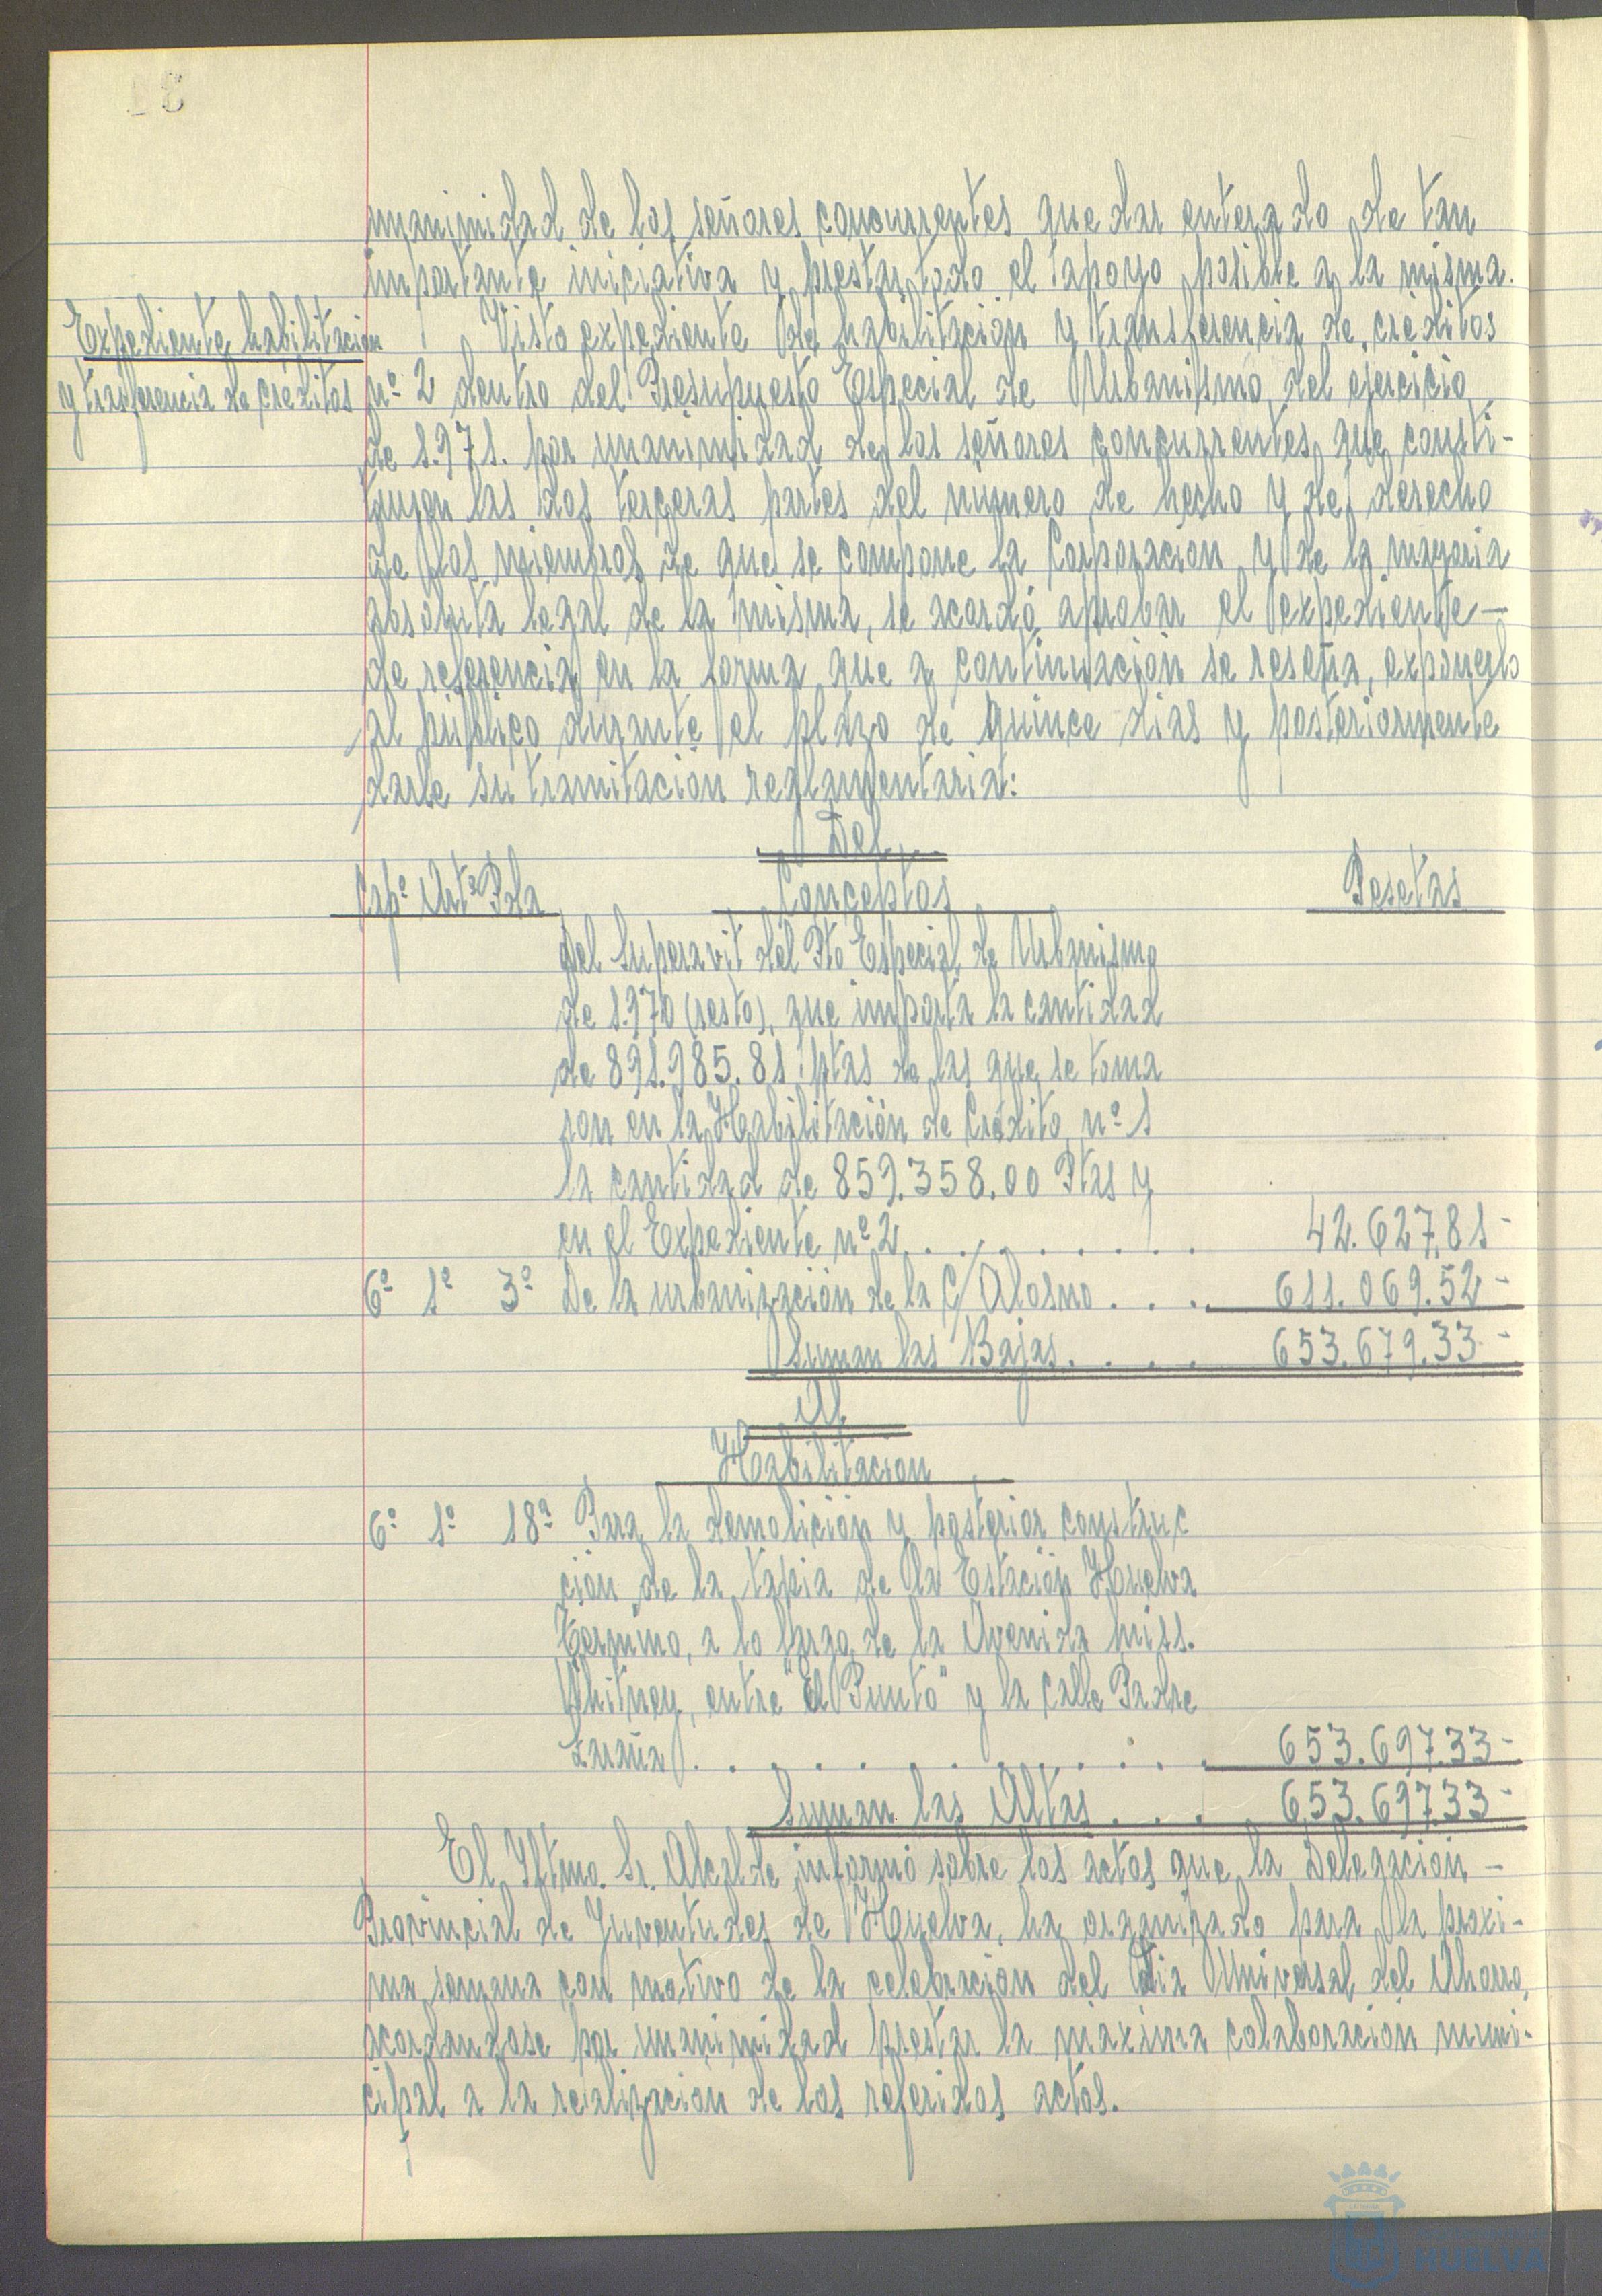 unanimidad de los señores concurrentes quedar enterado de tan
importante iniciativa y prestar todo el apoyo posible a la misma.
Expediente habilitacion
y trasferencia de créditos
Visto expediente de habilitación y transferencia de créditos
nº 2 dentro del Presupuesto Especial de Urbanismo del ejercicio
de 1.971. por unanimidad de los señores concurrentes que consti-
tuyen las dos terceras partes del numero de hecho y de derecho
de los miembros de que se compone la Corporacion y de la mayoria
absoluta legal de la misma, se acordó aprobar el expediente-
de referencia en la forma que a continuación se reseña, exponerlo
al público durante el plazo de quince dias y posteriormente
darle su tramitación reglamentaria:
Del
Capº Artº Pda Conceptos Pesetas
Del Superavit del Pto Especial de Urbanismo
de 1.970 (resto), que importa la cantidad
de 891.985.81 ptas de las que se toma
ron en la Habilitación de Crédito nº 1
la cantidad de 859.358.00 Ptas y
en el Expediente nº 2 . . . . . . . 42.627,81-
6º 1º 3º De la urbanización de la C/ Alosno . . . . 611.069.52-
Suman las Bajas . . . . 653.679.33-
Al
Habilitacion
6º 1º 18º Para la demolición y posterior construc
ción de la tapia de la Estación Huelva
Término, a lo largo de la Avenida Miss.
Whitney, entre "El Punto" y la calle Padre
. . . . . . . . . . . 653.697.33-
Suman las Altas . . . . 653.697.33-
El Iltmo. Sr. Alcalde informó sobre los actos que la Delegación -
Provincial de Juventudes de Huelva, ha organizado para la proxi-
ma semana con motivo de la celebracion del Dia Universal del Ahorro,
acordandose por unanimidad prestar la maxima colaboración muni-
cipal a la realización de los referidos actos.
HUELVA